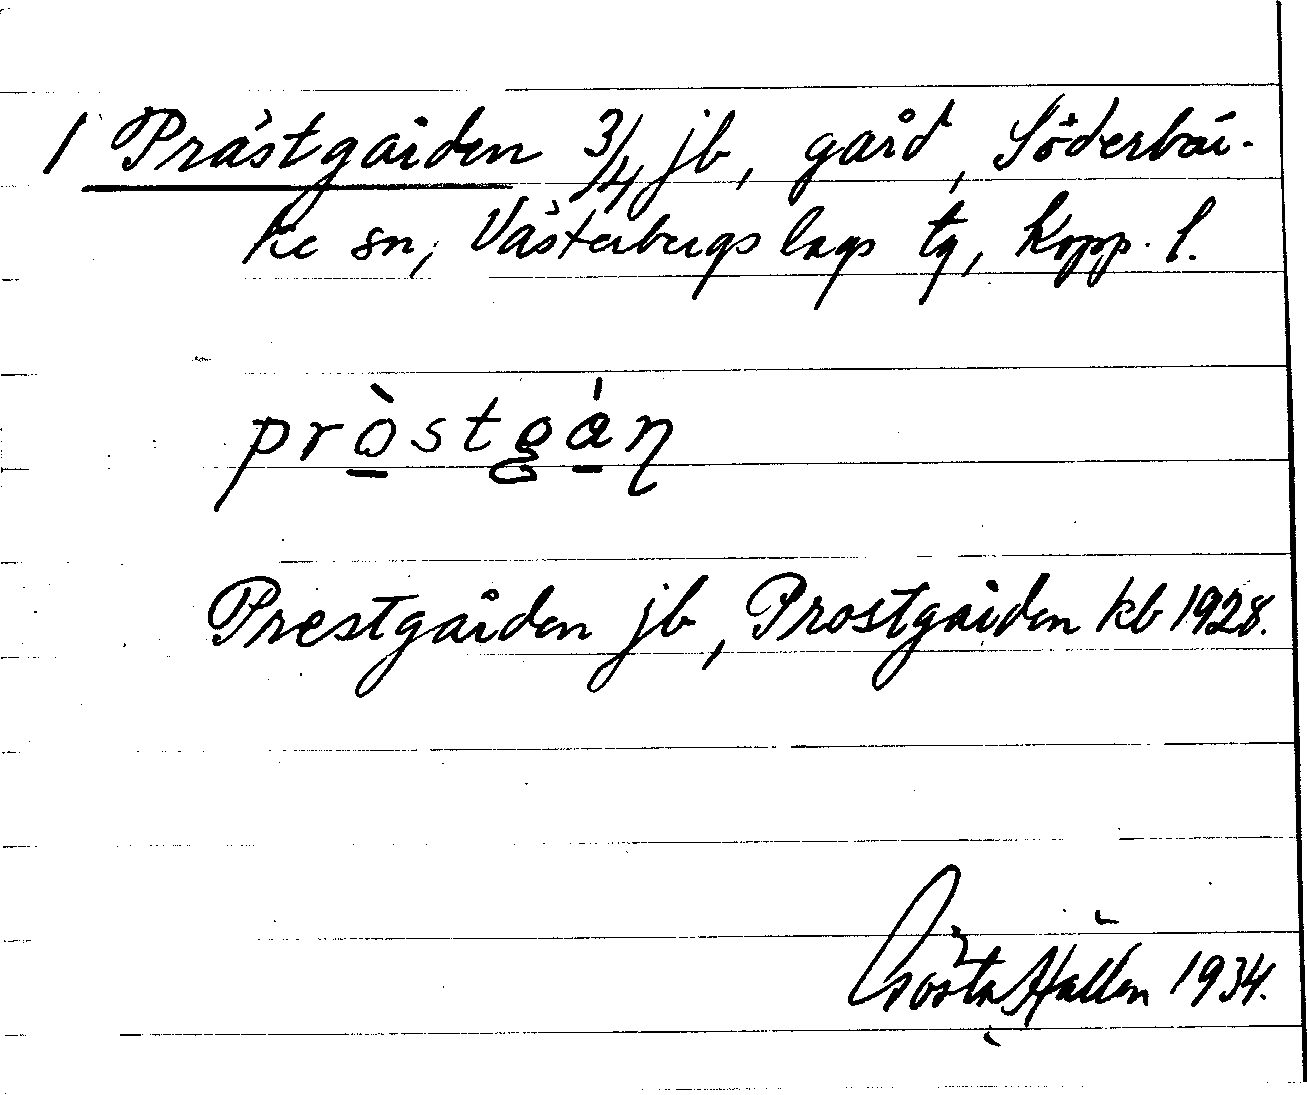 1 Prästgården 3/4 jb, gård, Söderbär-
ke sn, Västerbergslags tg, Kopp. l.
prò̱stgá̱n
Prestgården jb, Prostgården kb 1928.
Gösta Hallen 1934.